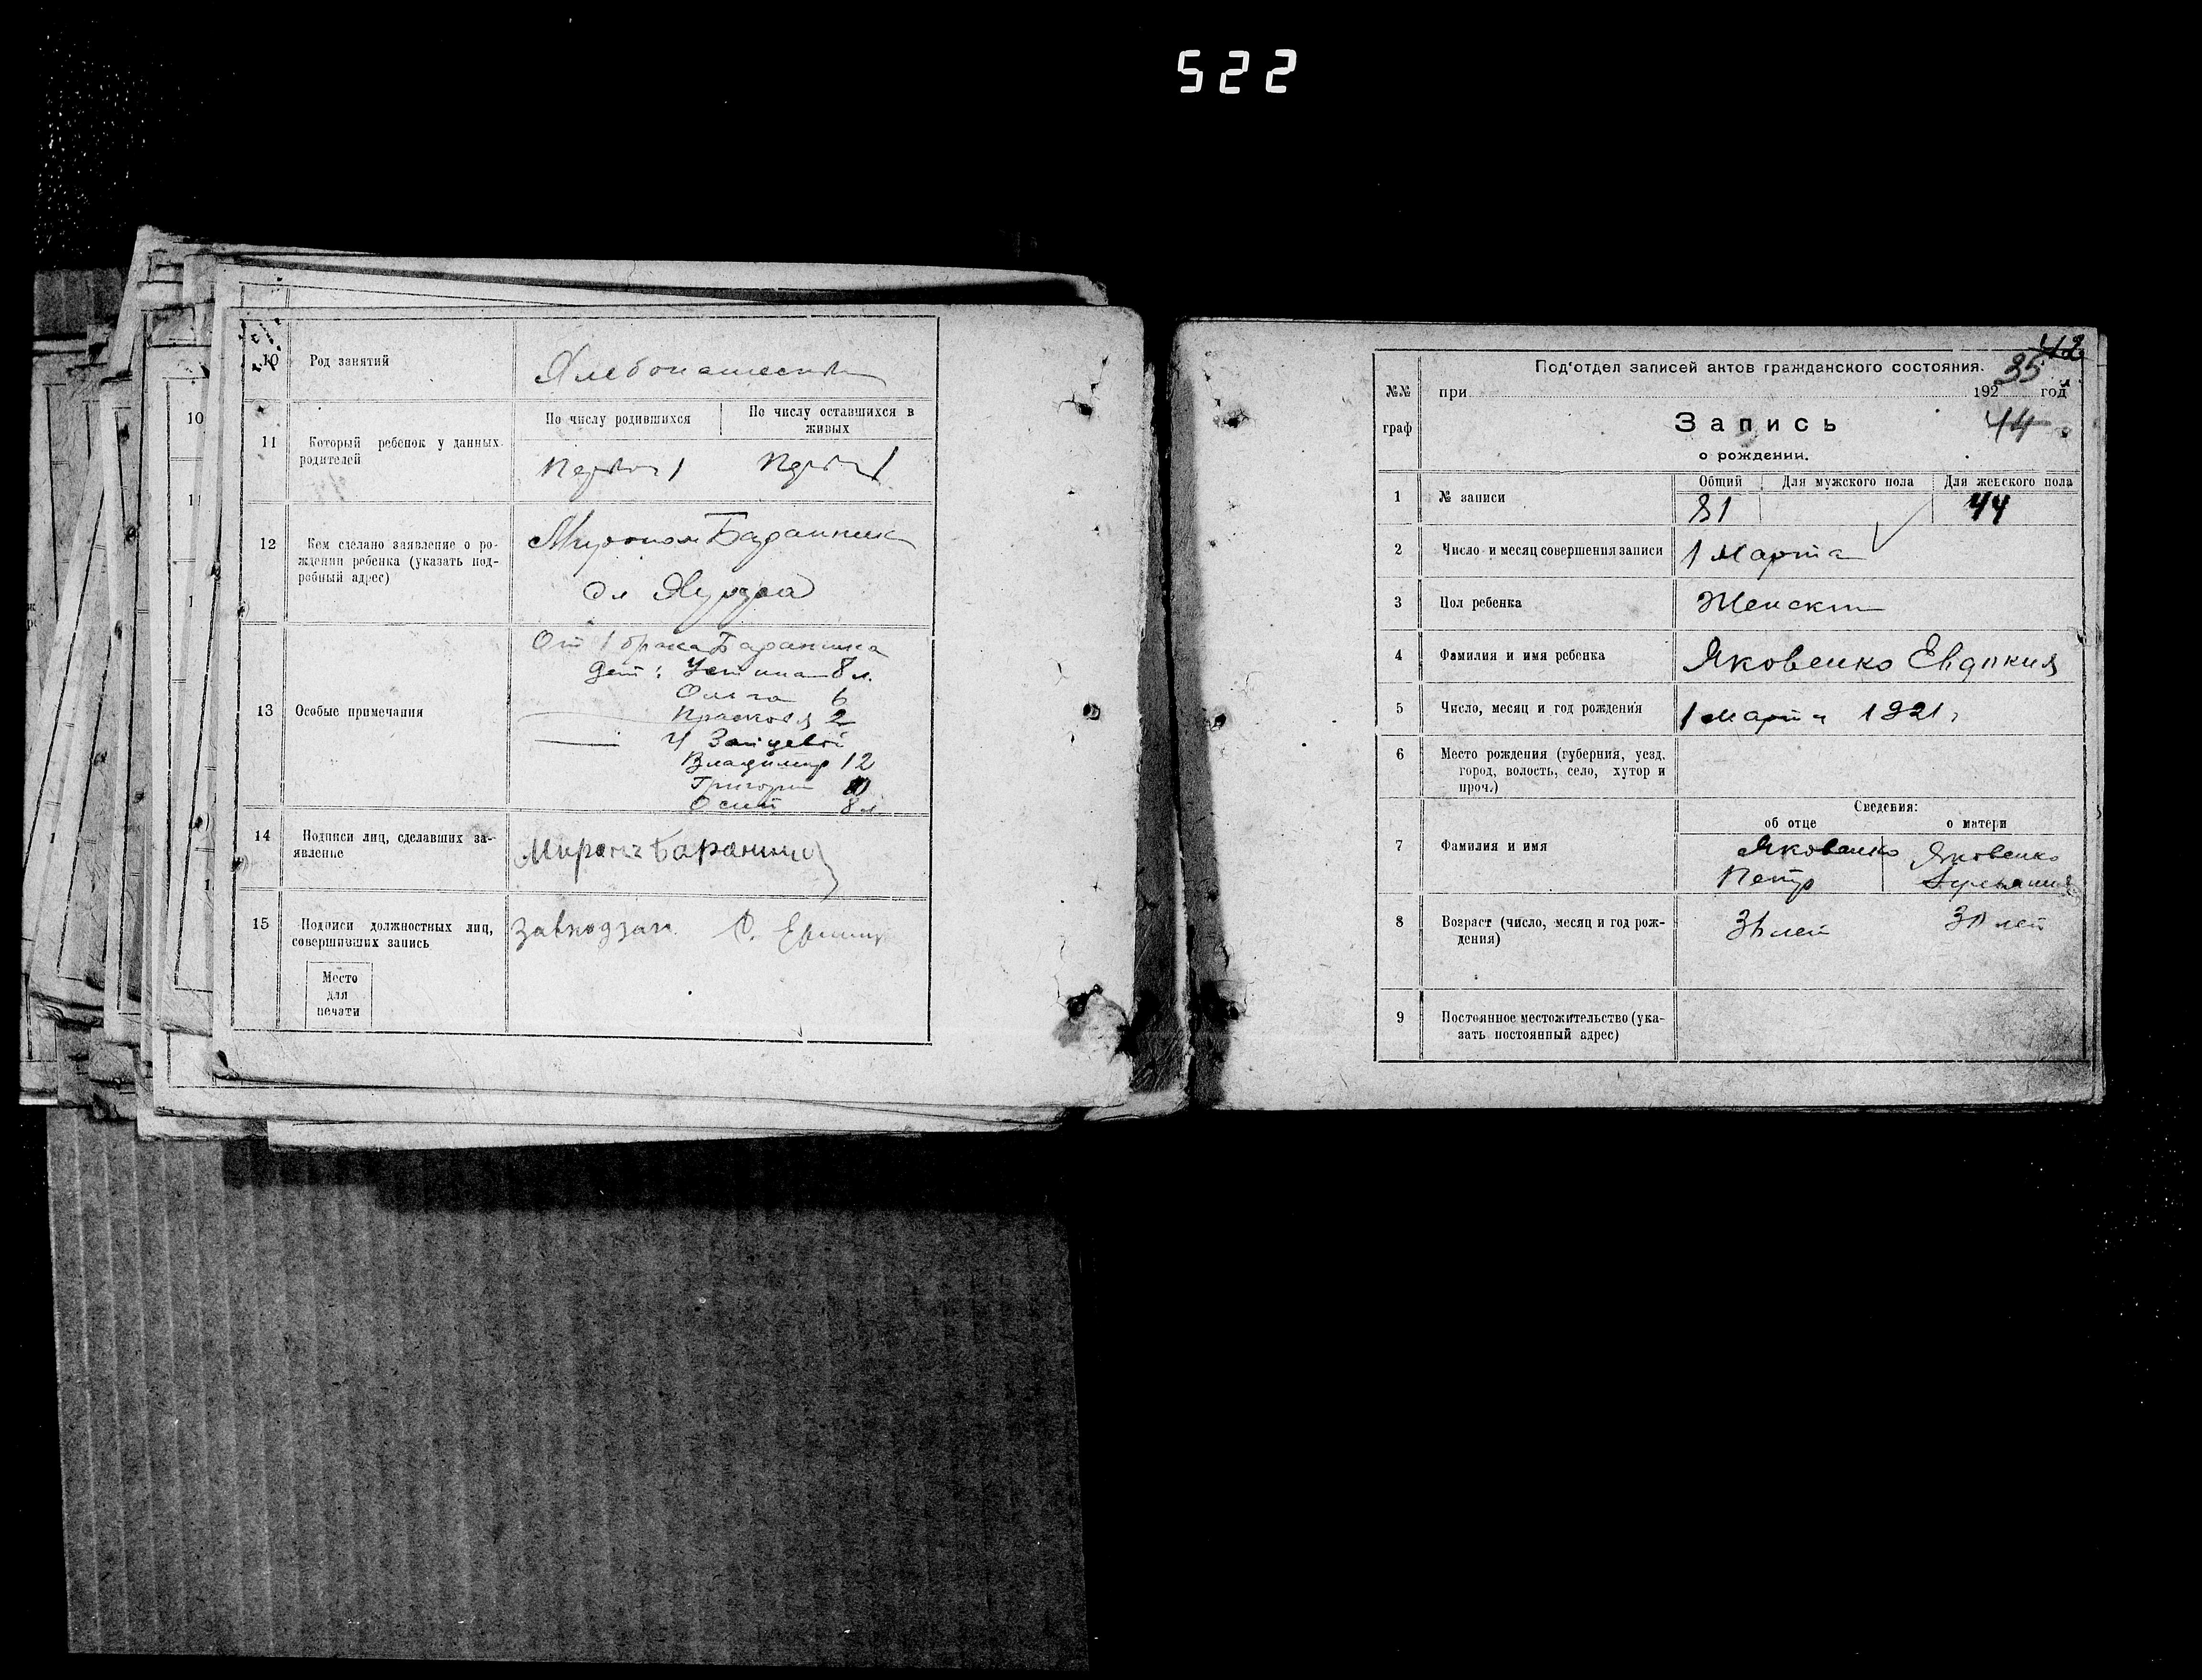 522
10 Род занятий
Хлебопашество
11 Который ребенок у данных
родителей
По числу родившихся
По числу оставшихся в
живых
Первый 1
Первый 1
12 Кем сделано заявление о ро-
ждении ребенка (указать под-
робный адрес)
Мироном Баранник
13 Особые примечания
От 1 брака Баранника
дети: Устина 8 л.
Ольга 6
Прасковья 2
У Зайцевой
Владимир 12
Григорий
Осип 8 л.
14 Подписи лиц, сделавших за-
явление
Миронъ Баранник
15 Подписи должностных лиц,
совершивших запись
Завподзаг
Место
для
печати
10
Под‘отдел записей актов гражданского состояния.
35
№№
граф
при 192 год
Запись
о рождении.
44
1 № записи
Общий Для мужского пола Для женского пола
81 44
2 Число и месяц совершения записи
1 Марта
3 Пол ребенка
Женский
4 Фамилия и имя ребенка
Яковенко Евдокия
5 Число, месяц и год рождения
1 Марта 1921 г
6 Место рождения (губерния, уезд,
город, волость, село, хутор и
проч.)
Сведения:
об отце о матери
7 Фамилия и имя
Яковенко
Петр
Яковенко
8 Возраст (число, месяц и год рож-
дения)
лет
лет
9 Постоянное местожительство (ука-
зать постоянный адрес)